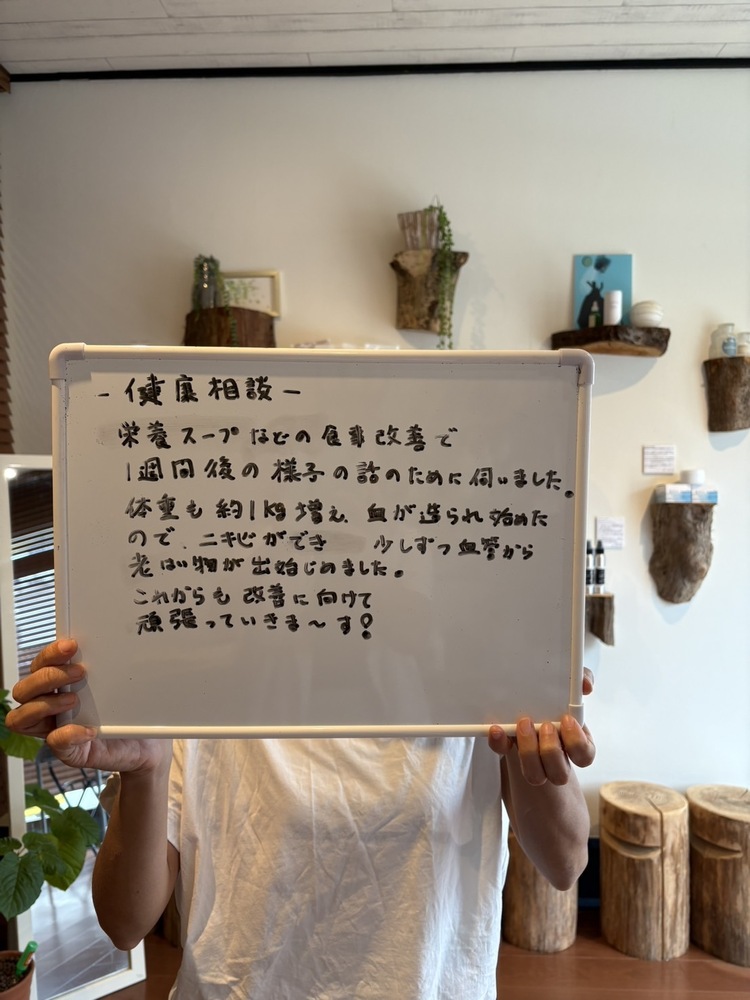 - 健康相談 -
栄養スープなどの食事改善で
1週間後の様子の話のために伺いました。
体重も約1kg増え、血が造られ始めた
ので、ニキビができ 少しずつ血管から
老はい物が出始じめました。
これからも改善に向けて
頑張っていきま〜す!